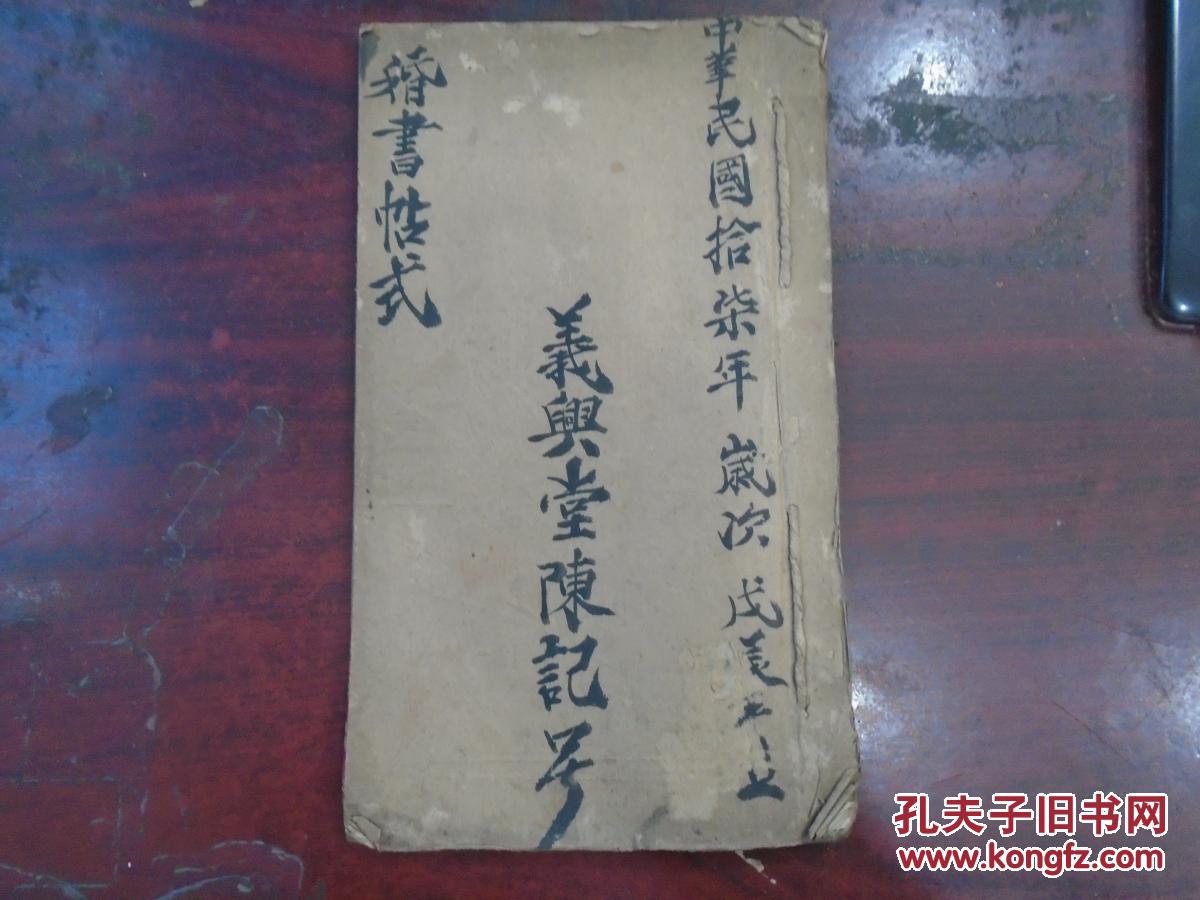 中華民國拾柒年 歲次 戊
義興堂陳記号
婚書帖式
孔夫子旧书网
www.kongfz.com